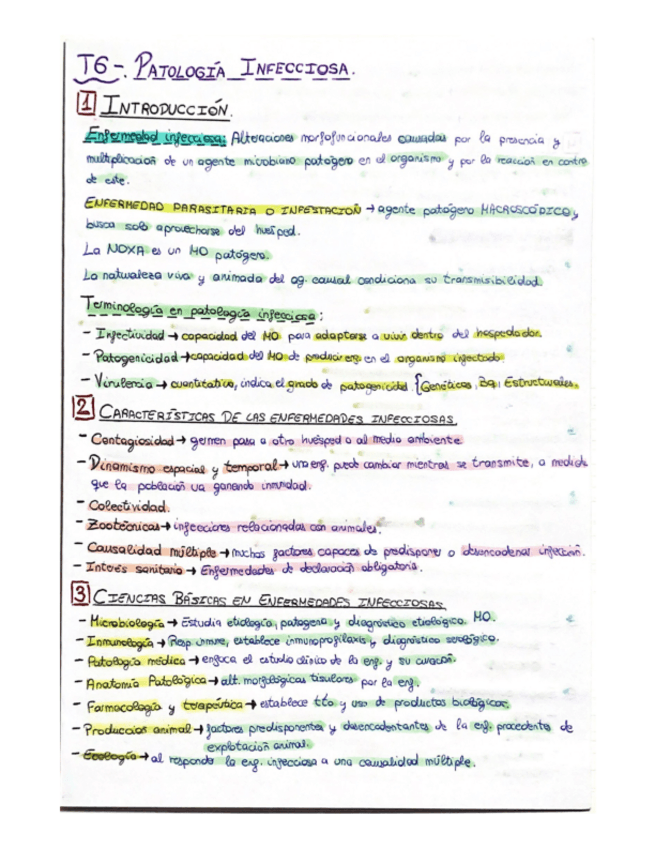 T6-. PATOLOGÍA INFECCIOSA.
1 INTRODUCCIÓN.
Enfermedad infecciosa: Alteraciones morfofuncionales causadas por la presencia y
multiplicación de un agente microbiano patógeno en el organismo y por la reacción en contra
de este.
ENFERMEDAD PARASITARIA O INFESTACIÓN → agente patógeno MACROSCÓPICO,
busca solo aprovecharse del huésped.
La NOXA es un MO patógeno.
La naturaleza viva y animada del ag. causal condiciona su transmisibilidad.
Terminología en patología infecciosa:
- Infectividad → capacidad del MO para adaptarse a vivir dentro del hospedador.
- Patogenicidad → capacidad del MO de producir enf en el organismo infectado
- Virulencia → cuantitativa, indica el grado de patogenicidad { Genéticos, Bq, Estructurales.
2 CARACTERÍSTICAS DE LAS ENFERMEDADES INFECCIOSAS.
- Contagiosidad → germen pasa a otro huésped o al medio ambiente
- Dinamismo espacial y temporal → una enf. puede cambiar mientras se transmite, a medida
que la población va ganando inmunidad.
- Colectividad.
- Zootécnicas → infecciones relacionadas con animales.
- Causalidad múltiple → muchos factores capaces de predisponer o desencadenar infección.
- Interés sanitario → Enfermedades de declaración obligatoria.
3 CIENCIAS BÁSICAS EN ENFERMEDADES INFECCIOSAS
- Microbiología → Estudia etiología, patogenia y diagnóstico etiológico MO.
- Inmunología → Resp inmune, establece inmunoprofilaxis y diagnóstico serológico.
- Patología médica → enfoca el estudio clínico de la enf. y su curación.
- Anatomía Patológica → alt. morfológicas tisulares por la enf.
- Farmacología y terapéutica → establece tto y uso de productos biológicos.
- Producción animal → factores predisponentes y desencadentantes de la enf. procedente de
explotación animal.
- Ecología → al responde la enf. infecciosa a una causalidad múltiple.